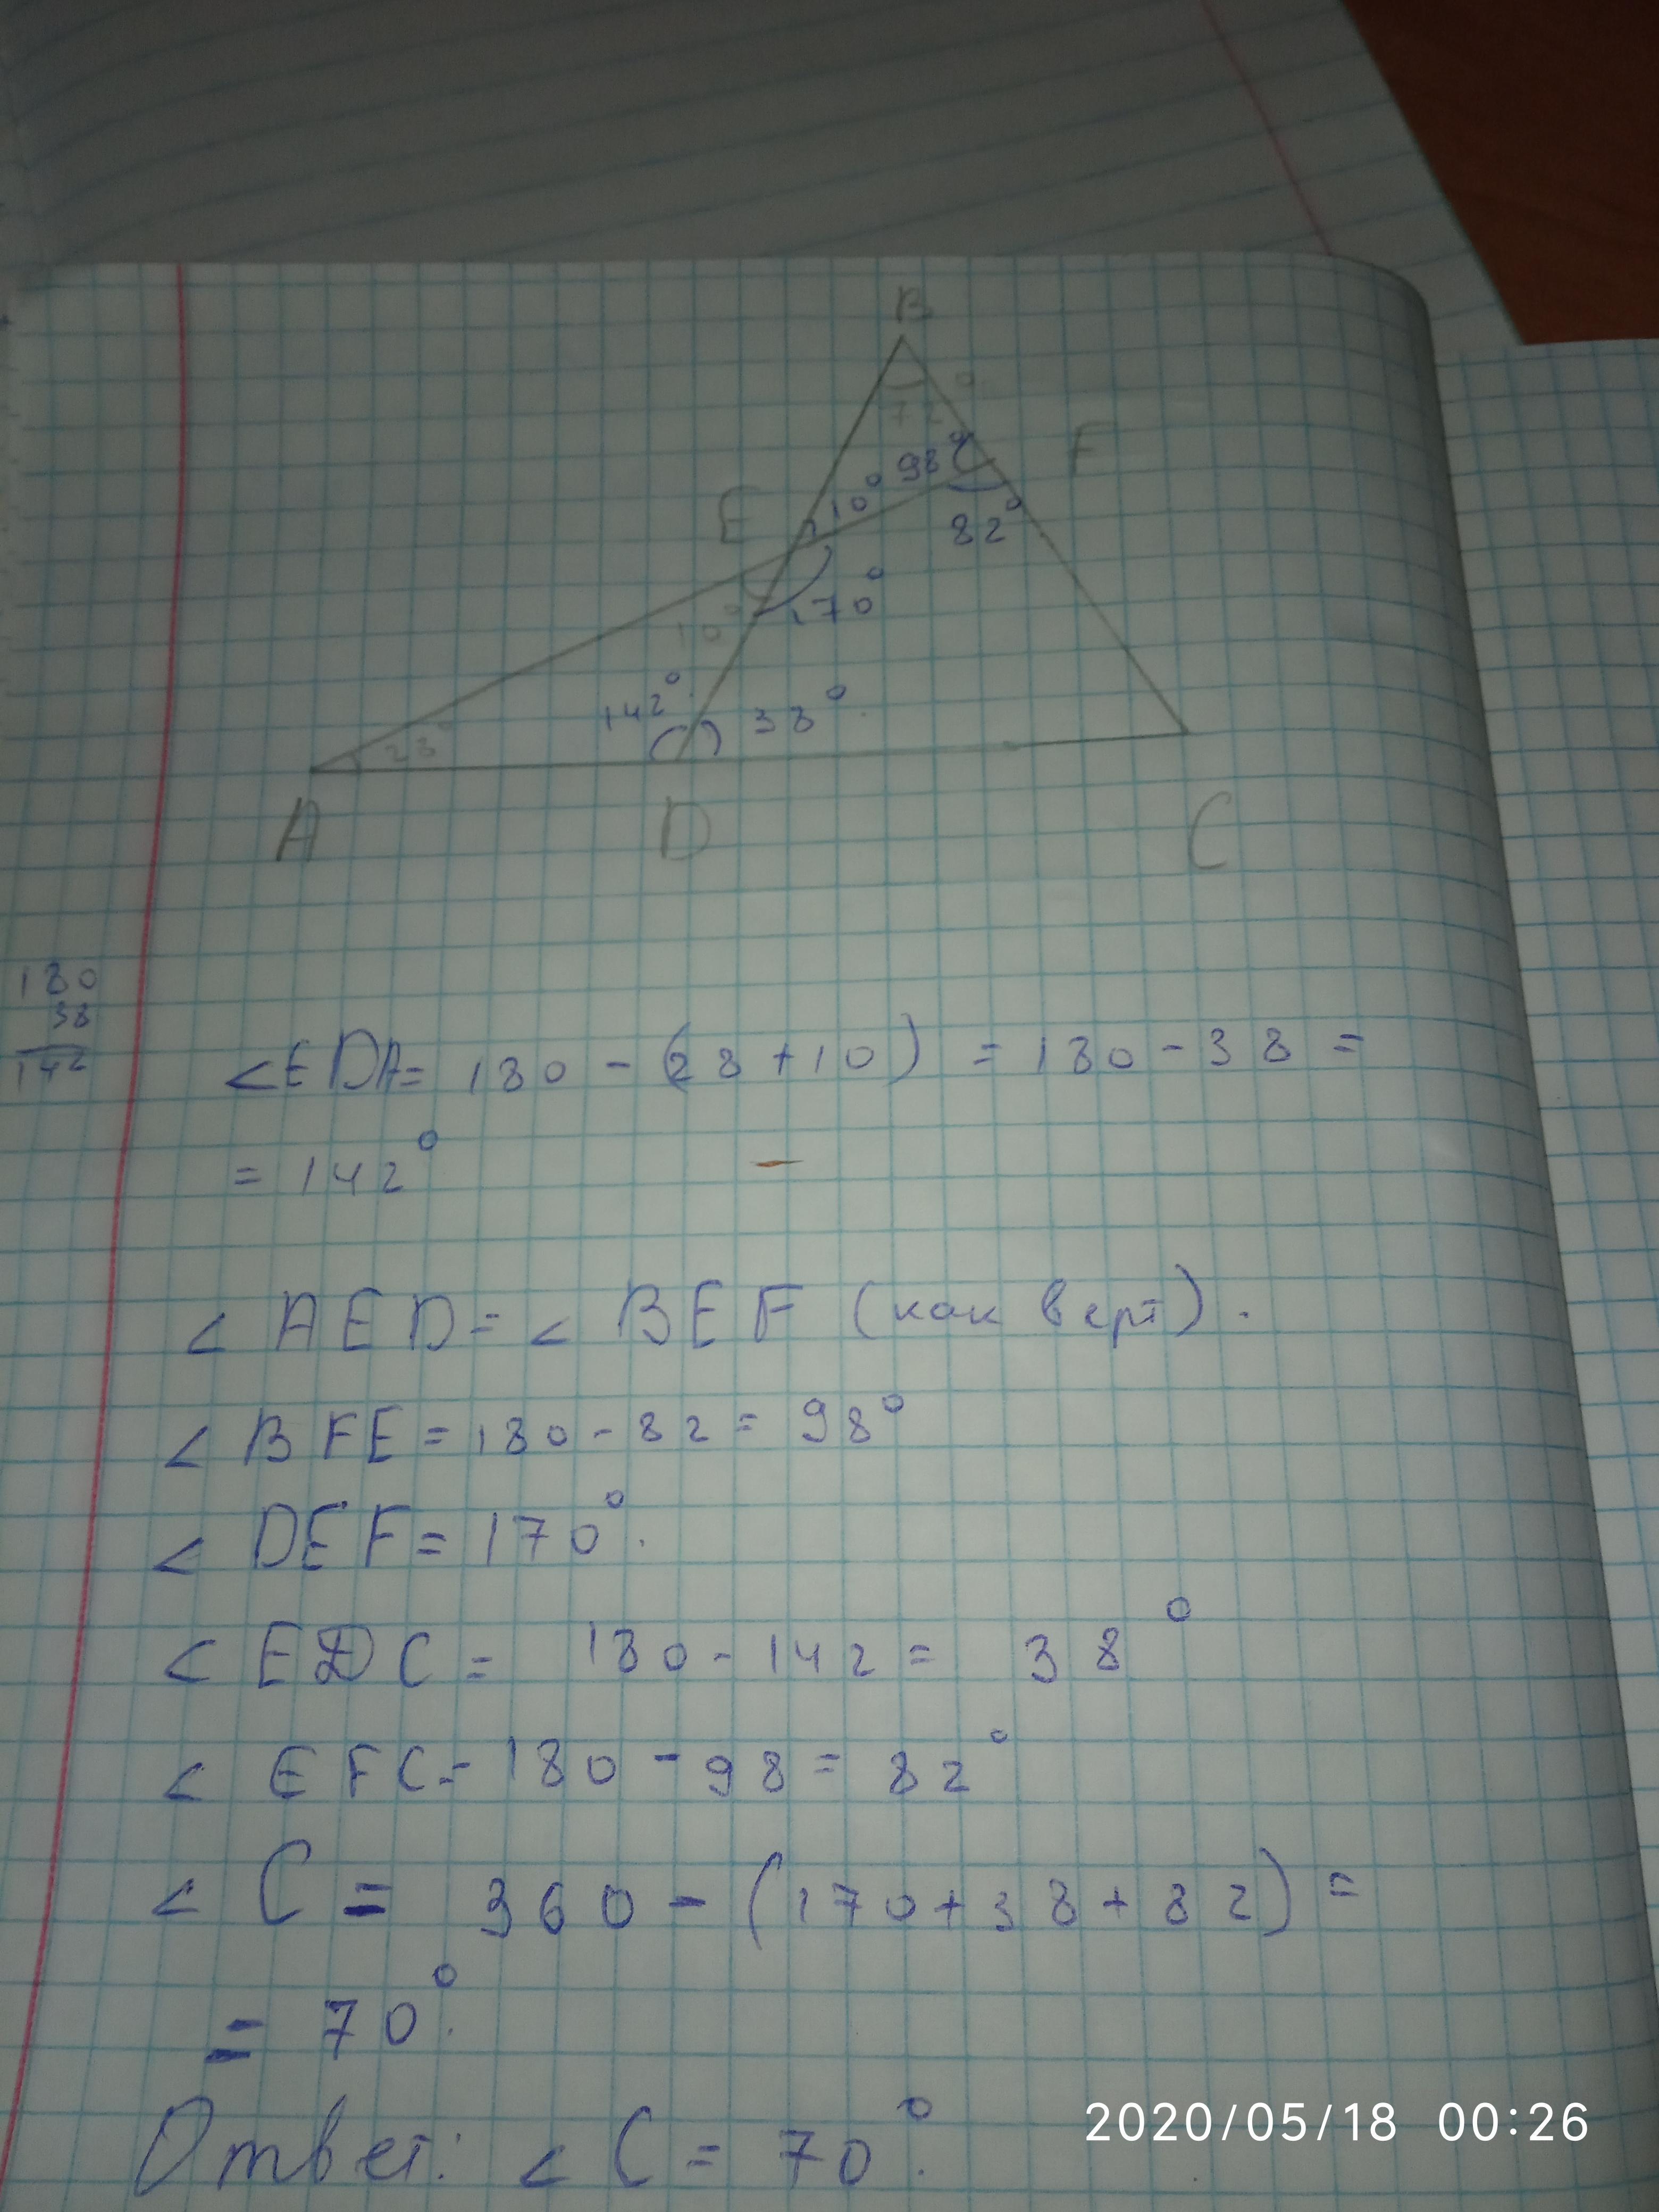 B
72°
98°
F
E
10°
82°
170°
10°
142°
38°
28°
A
D
C
180
38
142
<EDA= 180 - (28+10) = 180 - 38 =
= 142°
< AED = < BEF (как верт).
< BFE = 180 - 82 = 98°
< DEF = 170°.
< EDC = 180 - 142 = 38°
< EFC = 180 - 98 = 82°
< C = 360 - (170+38+82) =
= 70°.
Ответ: < C = 70°.
2020/05/18 00:26